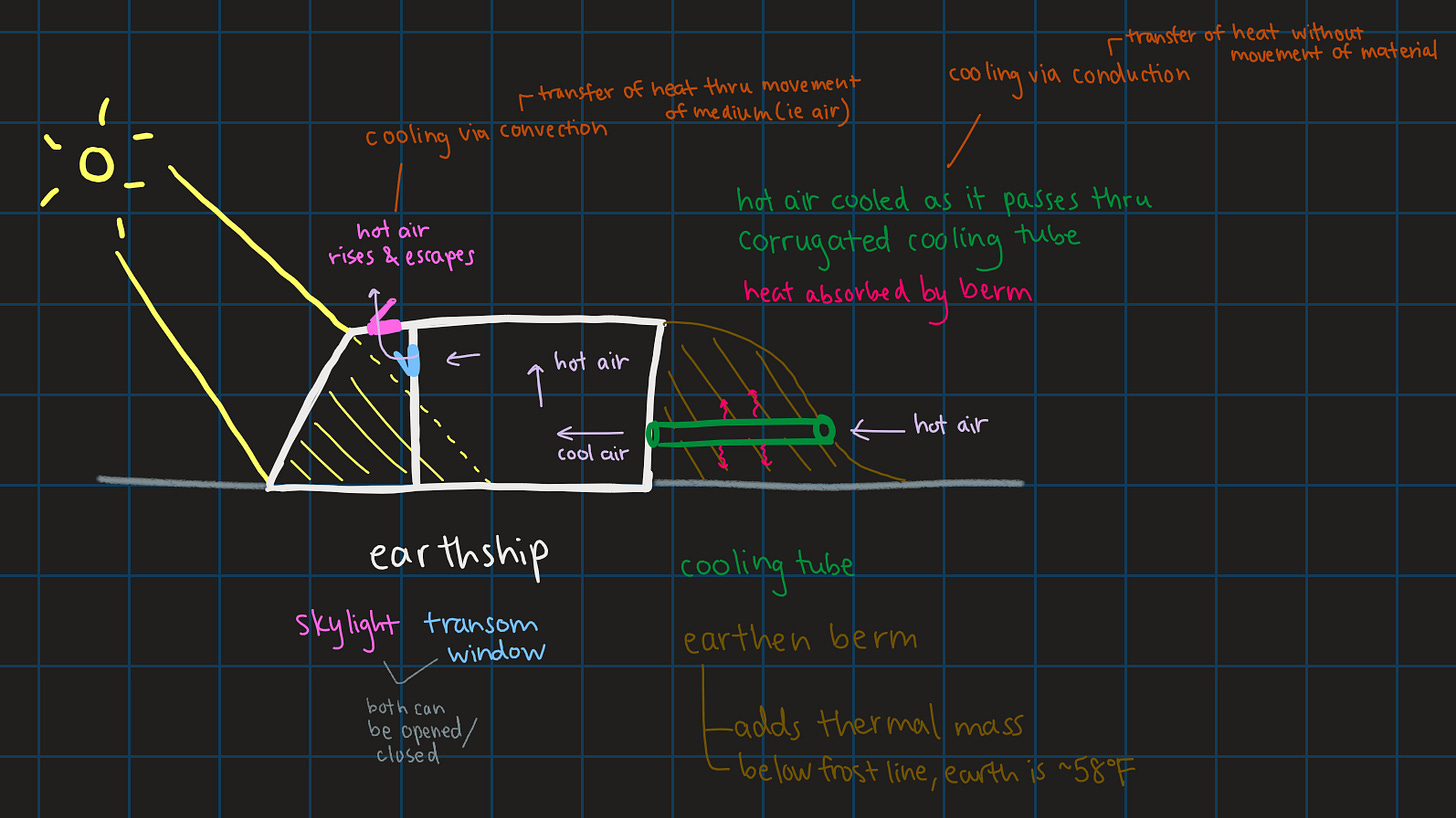 transfer of heat without
movement of material
cooling via conduction
transfer of heat thru movement
of medium (ie air)
cooling via convection
hot air cooled as it passes thru
corrugated cooling tube
heat absorbed by berm
hot air
rises & escapes
hot air
cool air
hot air
earthship
cooling tube
skylight
transom
window
both can
be opened/
closed
earthen berm
adds thermal mass
below frost line, earth is ~58°F